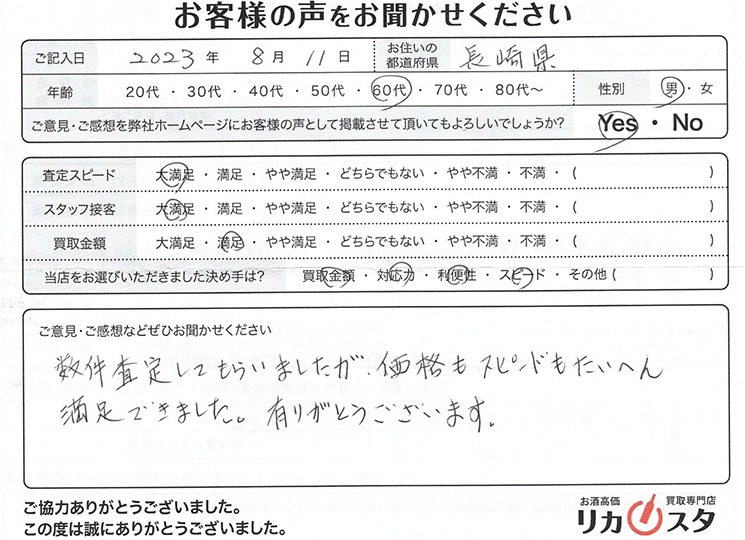 お客様の声をお聞かせください
ご記入日 2023 年 8 月 11 日 お住いの都道府県 長崎県
年齢 20代 ・ 30代 ・ 40代 ・ 50代 ・ 60代 ・ 70代 ・ 80代～ 性別 男 ・ 女
ご意見・ご感想を弊社ホームページにお客様の声として掲載させて頂いてもよろしいでしょうか? Yes ・ No
査定スピード 大満足 ・ 満足 ・ やや満足 ・ どちらでもない ・ やや不満 ・ 不満 ・ ( )
スタッフ接客 大満足 ・ 満足 ・ やや満足 ・ どちらでもない ・ やや不満 ・ 不満 ・ ( )
買取金額 大満足 ・ 満足 ・ やや満足 ・ どちらでもない ・ やや不満 ・ 不満 ・ ( )
当店をお選びいただきました決め手は? 買取金額 ・ 対応力 ・ 利便性 ・ スピード ・ その他 ( )
ご意見・ご感想などぜひお聞かせください
数件査定してもらいましたが、価格もスピードもたいへん
満足できました。有りがとうございます。
ご協力ありがとうございました。
この度は誠にありがとうございました。
お酒高価 買取専門店
リカスタ